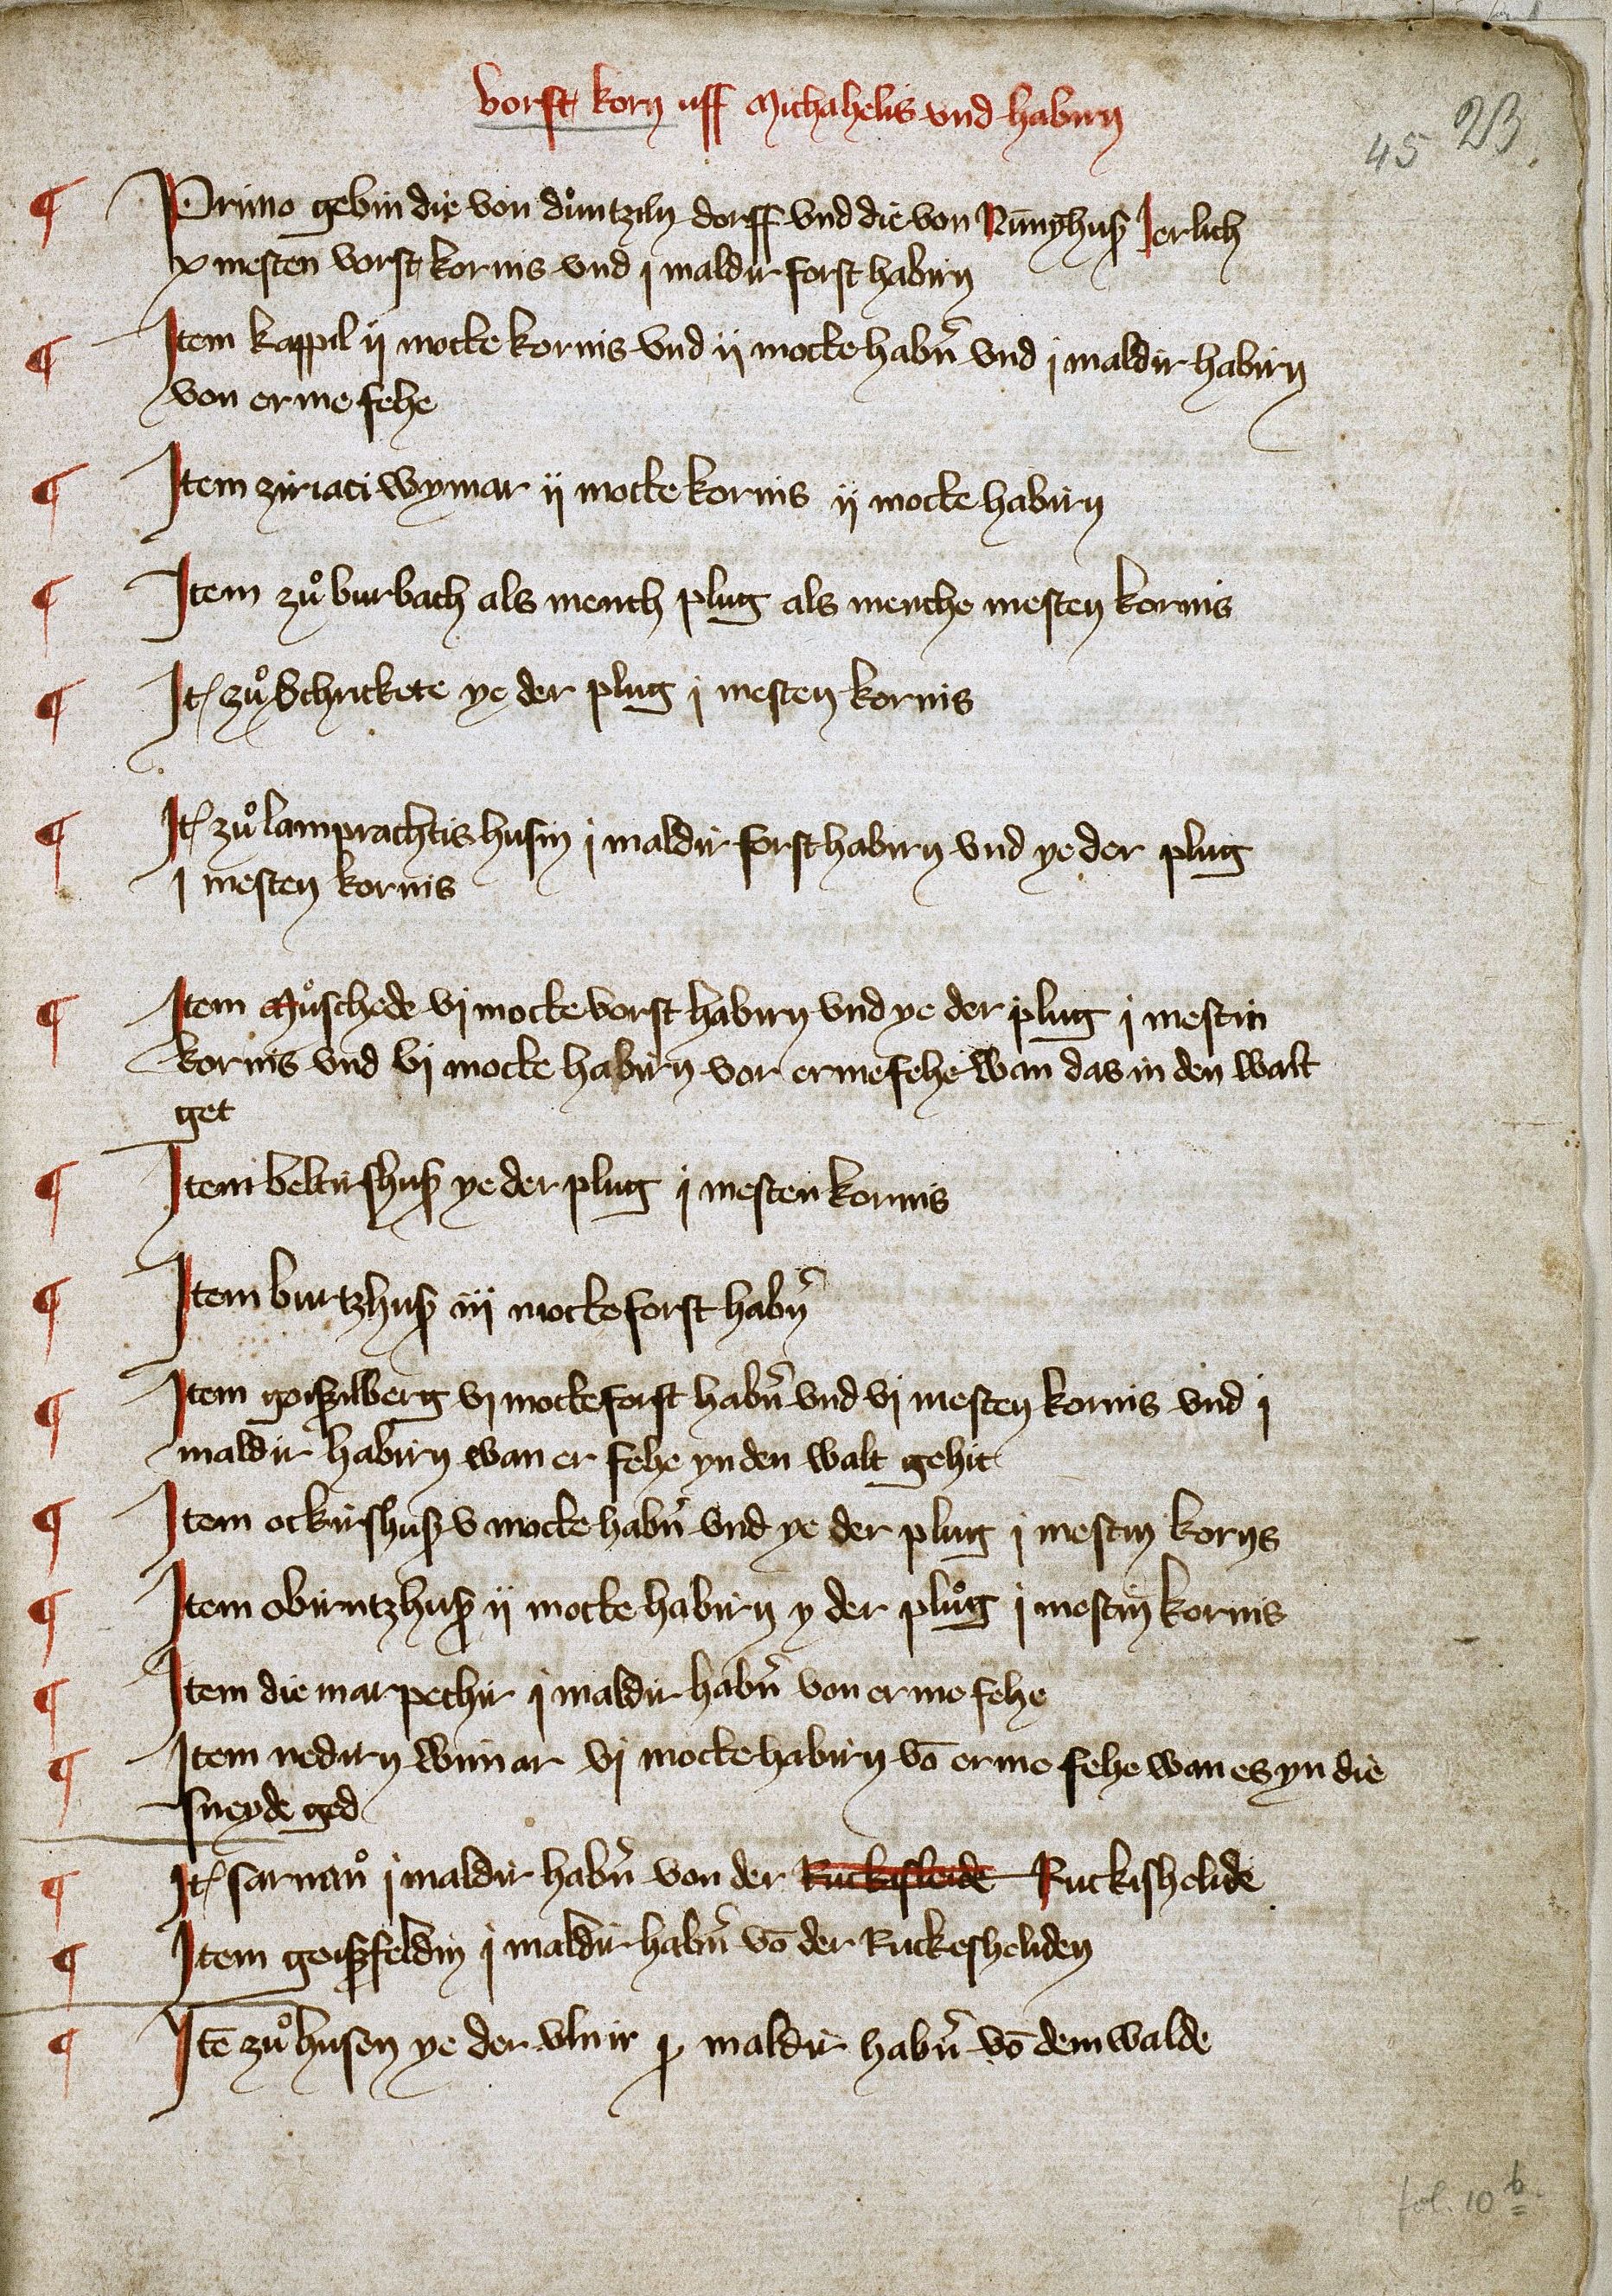 vorst korn uff Michahelis vnd habirn
45 23.
Primo gebin die von důntziln dorff vnd die von Nunghuß Jerlich
x mesten vorst kornis vnd j maldir forst habirn
Item kappil ij mocke kornis vnd ij mocke habirn vnd j maldir habirn
von erme fehe
Item ziriaci wymar ij mocke kornis ij mocke habirn
Item zů burbach als mench plug als menche mesten kornis
It zů Schrickete ye der plug j mesten kornis
It zů lamprachtishusin j maldir forst habirn vnd ye der plug
j mesten kornis
Item Můschede vj mocke vorst habirn vnd ye der plug j mestin
kornis vnd vj mocke habirn vor erme fehe wan das in den walt
get
Item beltirshuß ye der plug j mesten kornis
Item burtzhuß iij mocke forst habn̄
Item goißilberg vj mocke forst habn̄ vnd vj mesten kornis vnd j
maldir habirn wan er fehe yn den walt gehit
Item ockirshuß v mocke habn̄ vnd ye der plug j mestin korns
Item obirntzhuß ij mocke habirn y der plůg j mestin kornis
Item die marpechir j maldir habn̄ von erme fehe
Item nedirn wimar vj mocke habirn vō erme fehe wan es yn die
sneyde ged
It sarnaů j maldir habn̄ von der Ruckisleide Ruckishelide
Item goißfeldin j maldir habn̄ vō der Ruckesheliden
Itē zů husen ye der vlnir maldir habn̄ vō dem walde
fol. 10 b.